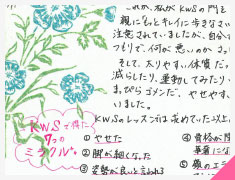 私がKWSの門を
親にもっとキレイに歩きなさい
注意されていましたが、自分
つもりで、何が悪いのか
そして、太りやすい体質だっ
減らしたり、運動してみたり、
まぴらゴメンだ、やせやすい
いました。
KWSのレッスンは求めていた以上
KWSで得た
7つの
ミラクル
① やせた
② 脚が細くなった
③ 姿勢が良いと言われる
④ 骨格が
華奢にな
⑤ 顔のエラ